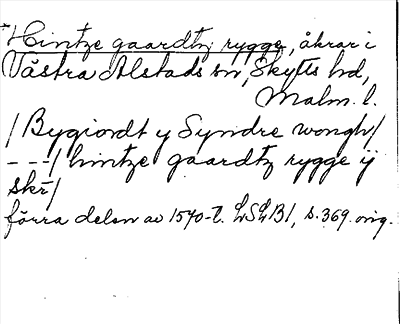 *Hintze gaardtz rygge, åkrar i
Västra Alstads sn, Skytts hd,
Malm. l.
/ Bygiordt y Syndre wongh/
---/ hintze gaardtz rygge ij
skr/
förra delen av 1570-t. LSLB1, s. 369. orig.